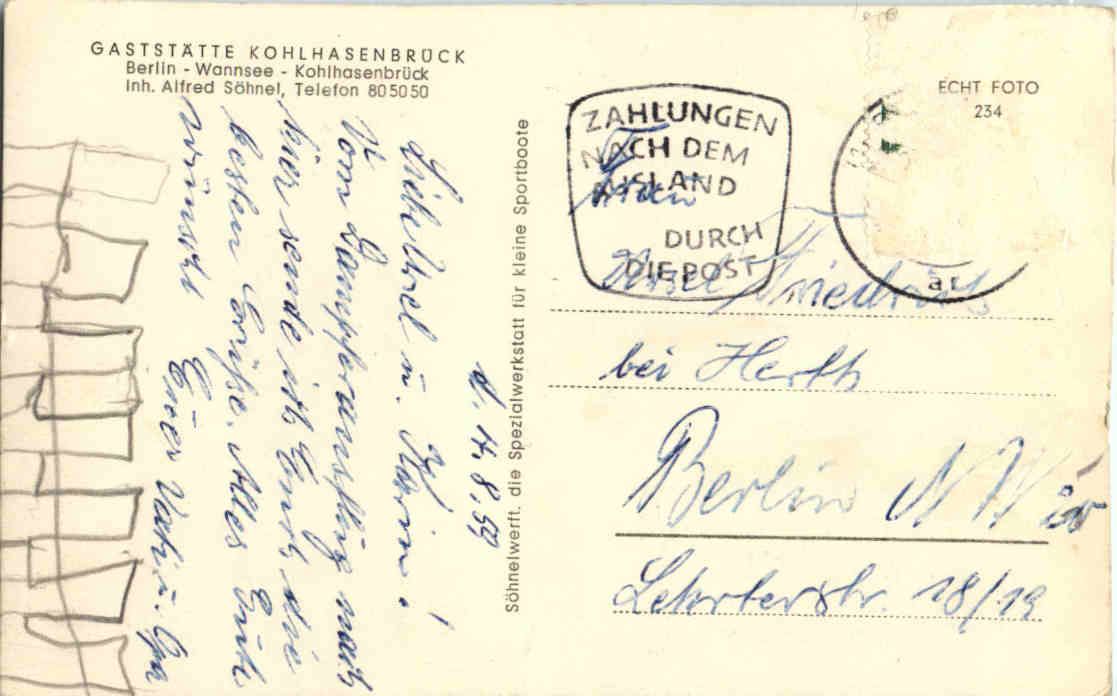 GASTSTÄTTE KOHLHASENBRÜCK
Berlin - Wannsee - Kohlhasenbrück
Inh. Alfred Söhnel, Telefon 805050
d. 14.8.59
Liebchel u. Karin!
Vom Dampferausflug nach
hier, sende ich Euch die
besten Grüße. Alles Gute
wünscht
Euer Vati u. Opa
Söhnelwerft, die Spezialwerkstatt für kleine Sportboote
ZAHLUNGEN
NACH DEM
AUSLAND
DURCH
DIE POST
ECHT FOTO
234
Friedrich
bei Herth
Berlin NW
Lehrterstr. 18/19